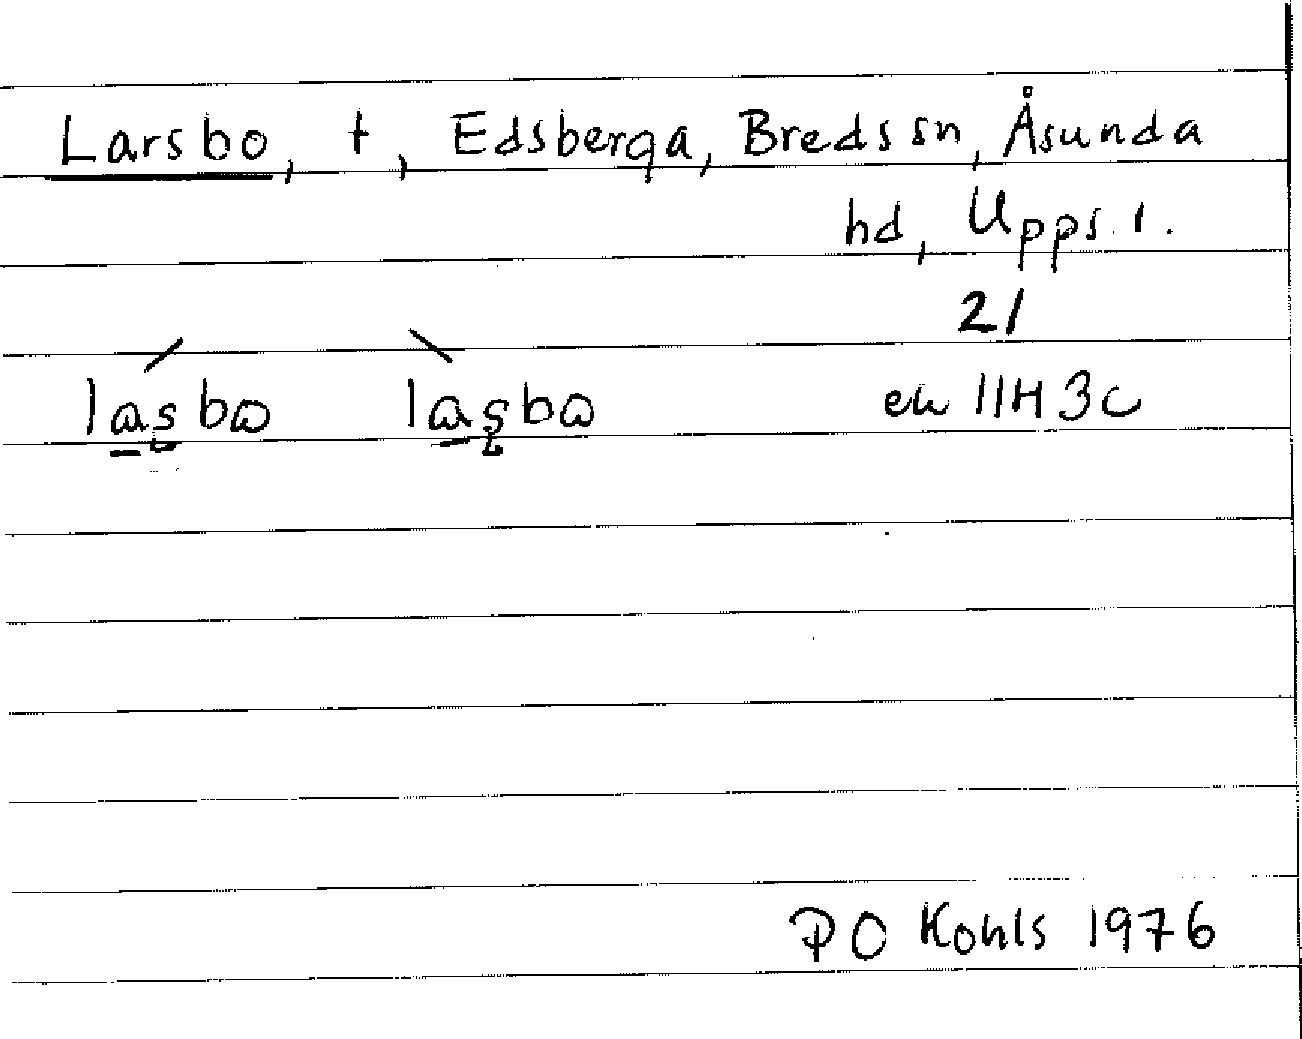 Larsbo, t, Edsberga, Bredssn, Åsunda
hd, Upps. l.
21
lasbo lasbo ek 11H 3c
PO Kohls 1976